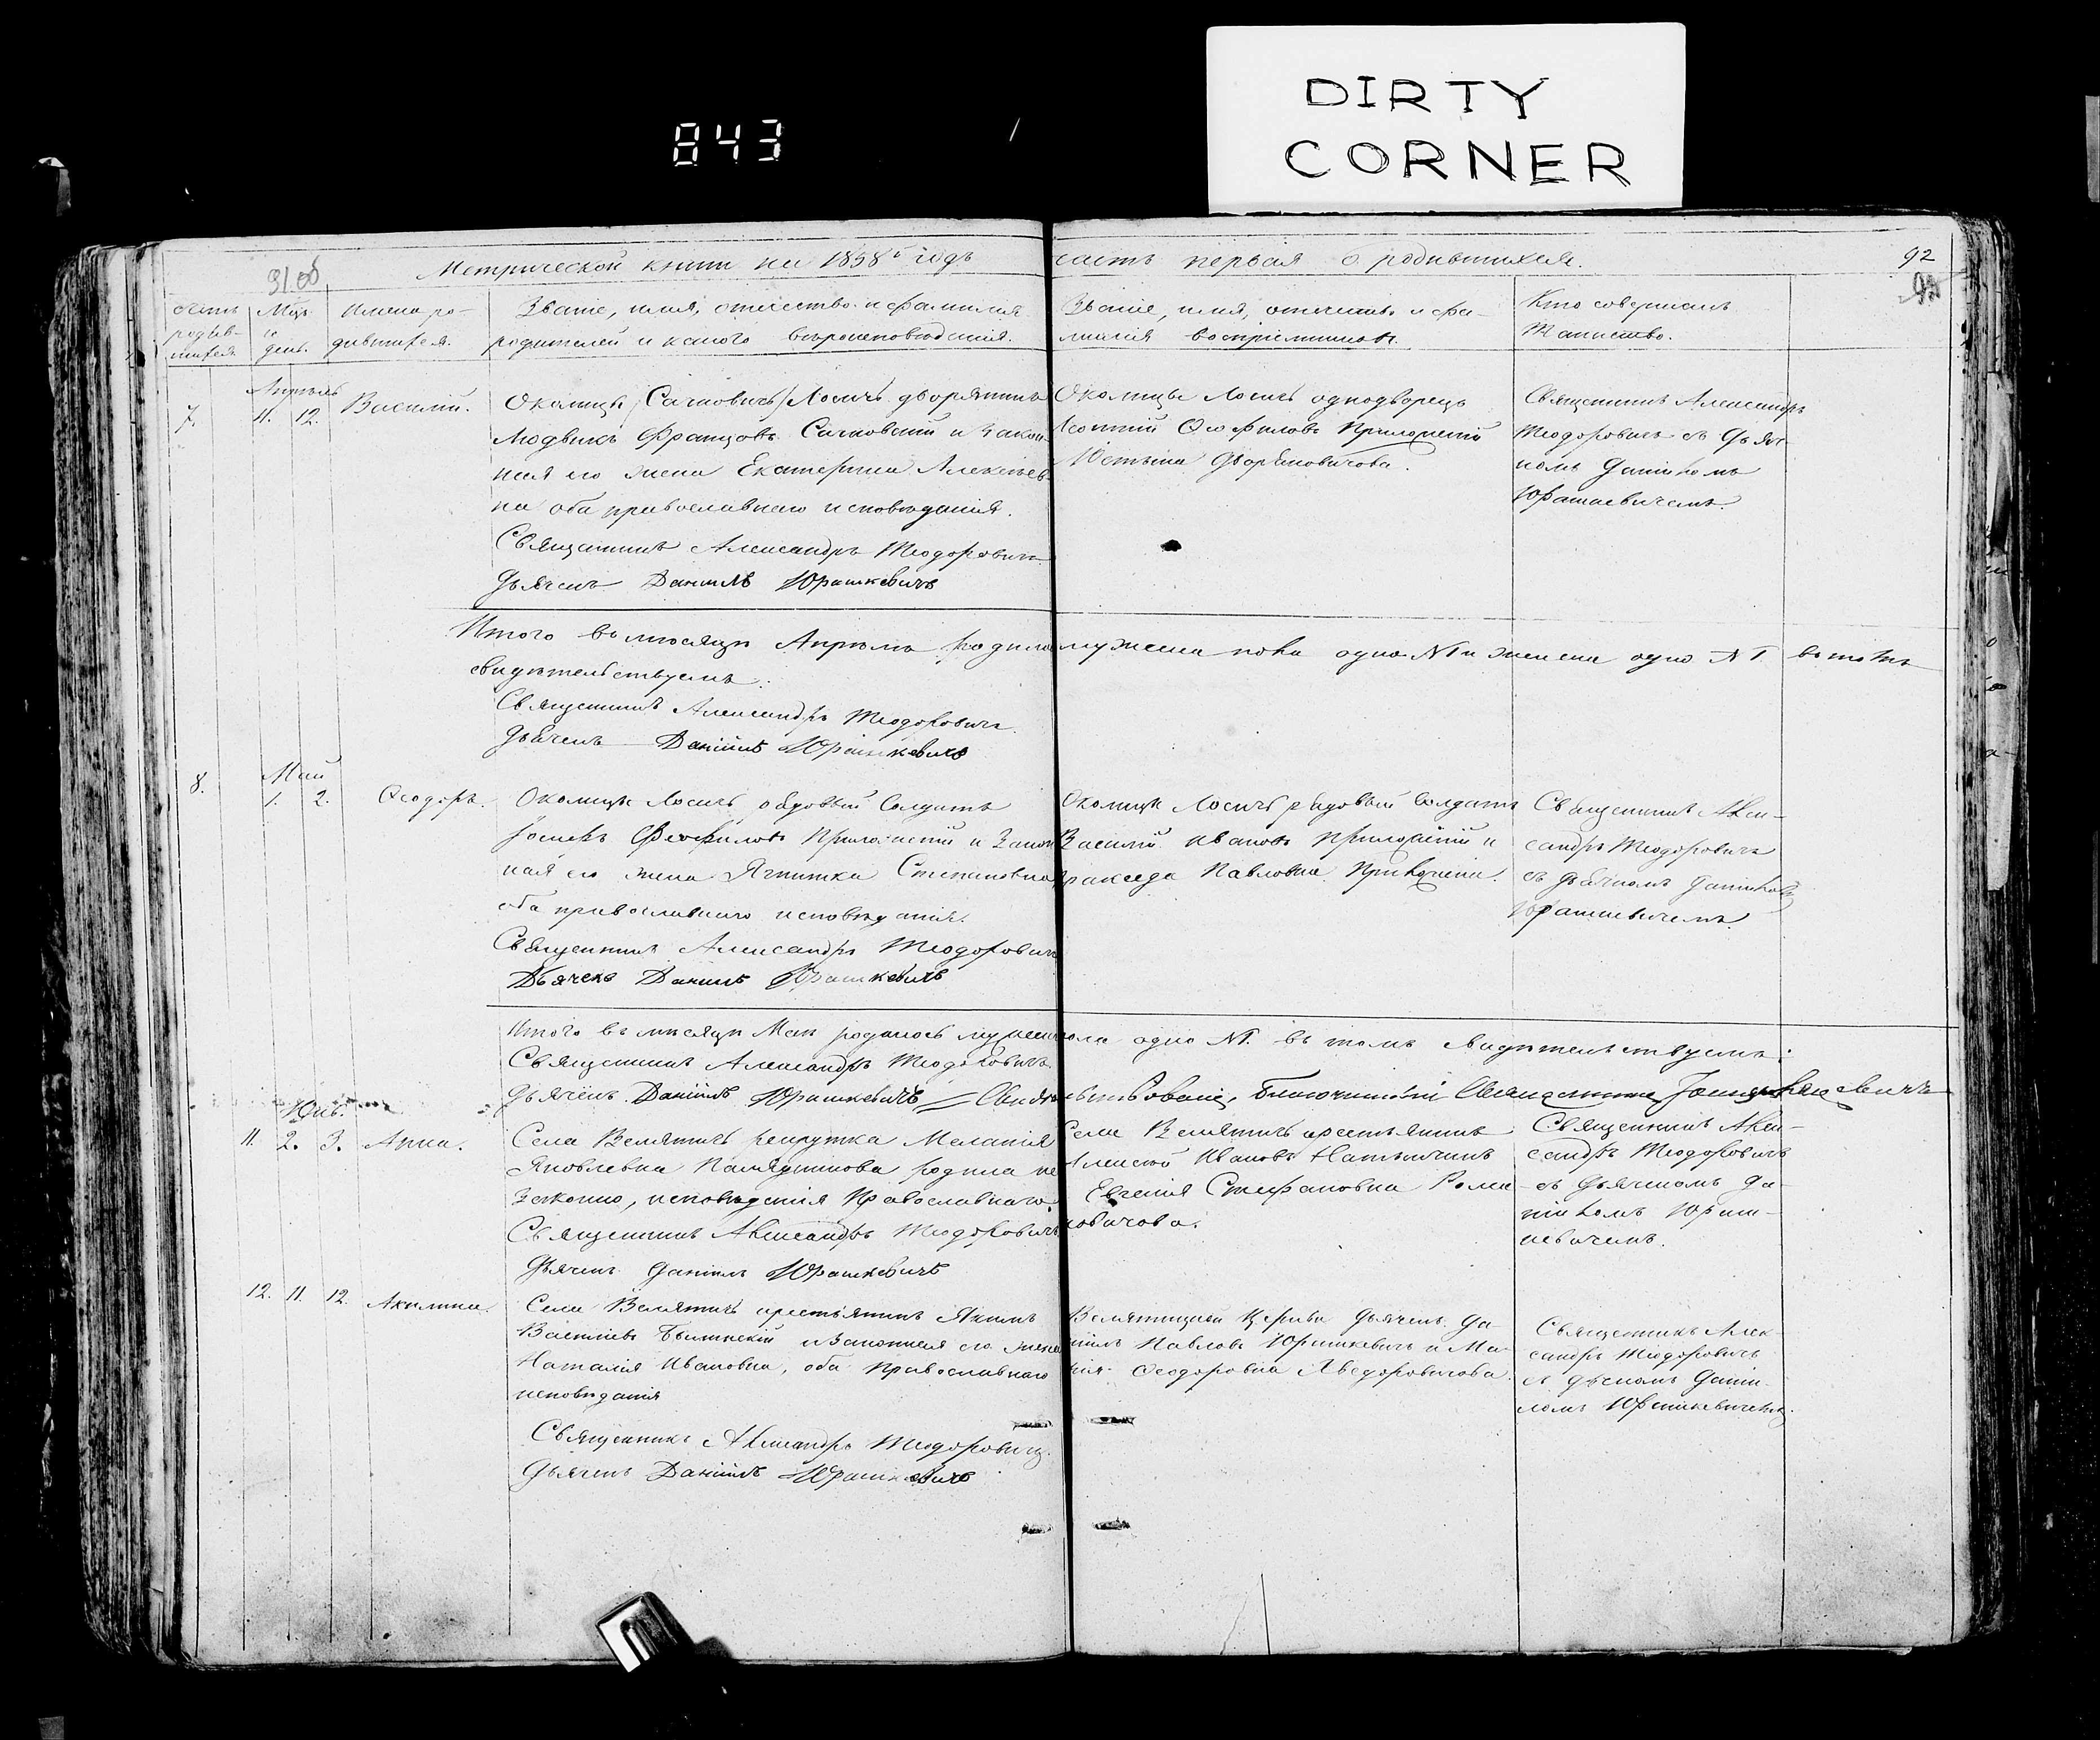 843
DIRTY
CORNER
Метрической книги на 1858й годъ
часть первая о родившихся.
92
Мцъ
и
день.
Имена ро-
дившихся.
Званіе, имя, отчество и фамилія
родителей и какого вѣроисповѣданія.
Званіе, имя, отчество и фа-
милія воспріемниковъ.
Кто совершалъ
таинство.
Апрѣль
7.
11. 12.
Василій.
Околицы Лосичъ дворянинъ
Людвикъ Францовъ Сачковскій и закон-
ная его жена Екатерина Алексѣев-
на оба православнаго исповѣданія.
Священникъ Александръ Теодоровичъ
Дьячекъ Даніилъ Юрашкевичъ
Околицы Лосичъ однодворецъ
Ѳеофиловъ
Священникъ Александръ
Теодоровичъ съ дьяч-
комъ Даніиломъ
Юрашкевичемъ.
Итого въ мѣсяцѣ Апрѣлѣ одно №1 и женска одно №1.
свидѣтельствуемъ:
Священникъ Александръ Теодоровичъ
Дьячекъ Даніилъ Юрашкевичъ
Май
8.
1. 2.
Ѳеодоръ.
Околицы Лосичъ рядовый солдатъ
Ѳеофиловъ и закон-
ная его жена Степановна
оба православнаго исповѣданія.
Священникъ Александръ Теодоровичъ
Дьячекъ Даніилъ Юрашкевичъ
Околицы Лосичъ рядовый солдатъ
Василій Ивановъ и
Павловна
Священникъ Алек-
сандръ Теодоровичъ
съ дьячкомъ Даніиломъ
Юрашкевичемъ.
Итого въ мѣсяцѣ Маѣ родилось мужеска пола одно №1. въ томъ свидѣтельствуемъ:
Священникъ Александръ Теодоровичъ
Дьячекъ Даніилъ Юрашкевичъ
Благочинный Священникъ
Юнь.
11.
2. 3.
Анна.
Села Велятичъ рекрутка Меланія
Яковлевна родила не-
законно, исповѣданія Православнаго.
Священникъ Александръ Теодоровичъ
Дьячекъ Даніилъ Юрашкевичъ
Села Велятичъ крестьянинъ
Алексѣй Ивановъ
Евгенія Стефановна Рома-
новичова.
Священникъ Алек-
сандръ Теодоровичъ
съ дьячкомъ Да-
ніиломъ Юраш-
кевичемъ.
12. 11. 12.
Акилина.
Села Велятичъ крестьянинъ Якимъ
Васильевъ и законная его жена
Наталія Ивановна, оба православнаго
исповѣданія
Священникъ Александръ Теодоровичъ.
Дьячекъ Даніилъ Юрашкевичъ
Велятицкой церкви дьячекъ Да-
ніилъ Павловъ Юрашкевичъ и Ма-
рія Ѳеодоровна
Священникъ Алек-
сандръ Теодоровичъ
съ дьячкомъ Даніи-
ломъ Юрашкевичемъ.